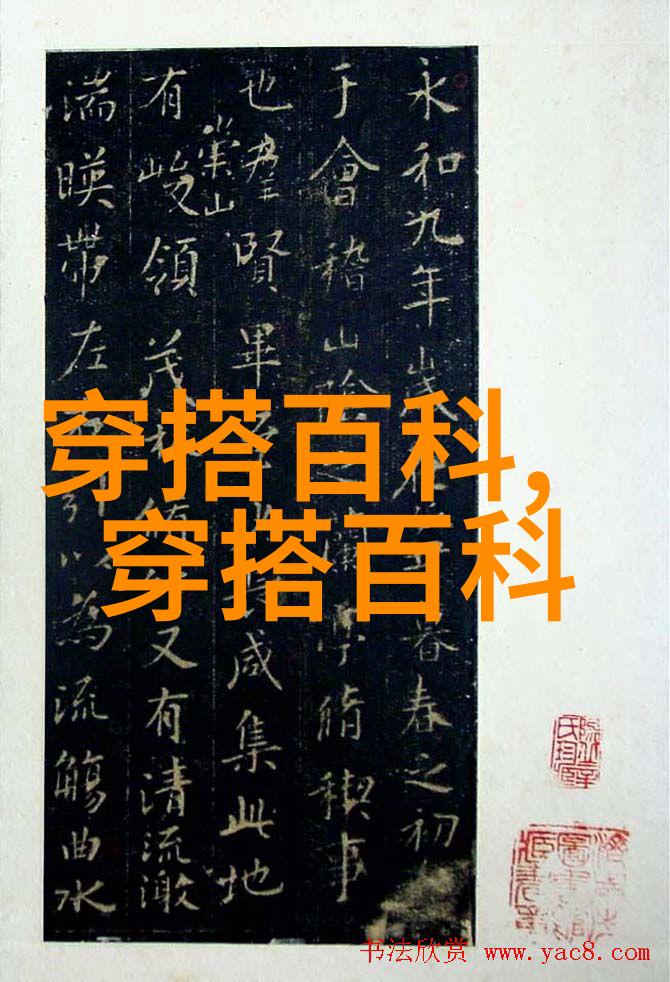 永和九年歲在暮春之初
于會稽山陰之蘭亭脩禊事
也羣賢畢咸集此地
有崇山峻領茂又有清流激
湍暎帶左引以為流觴曲水
穿搭百科,
穿搭百科
书法欣赏 www.yac8.com